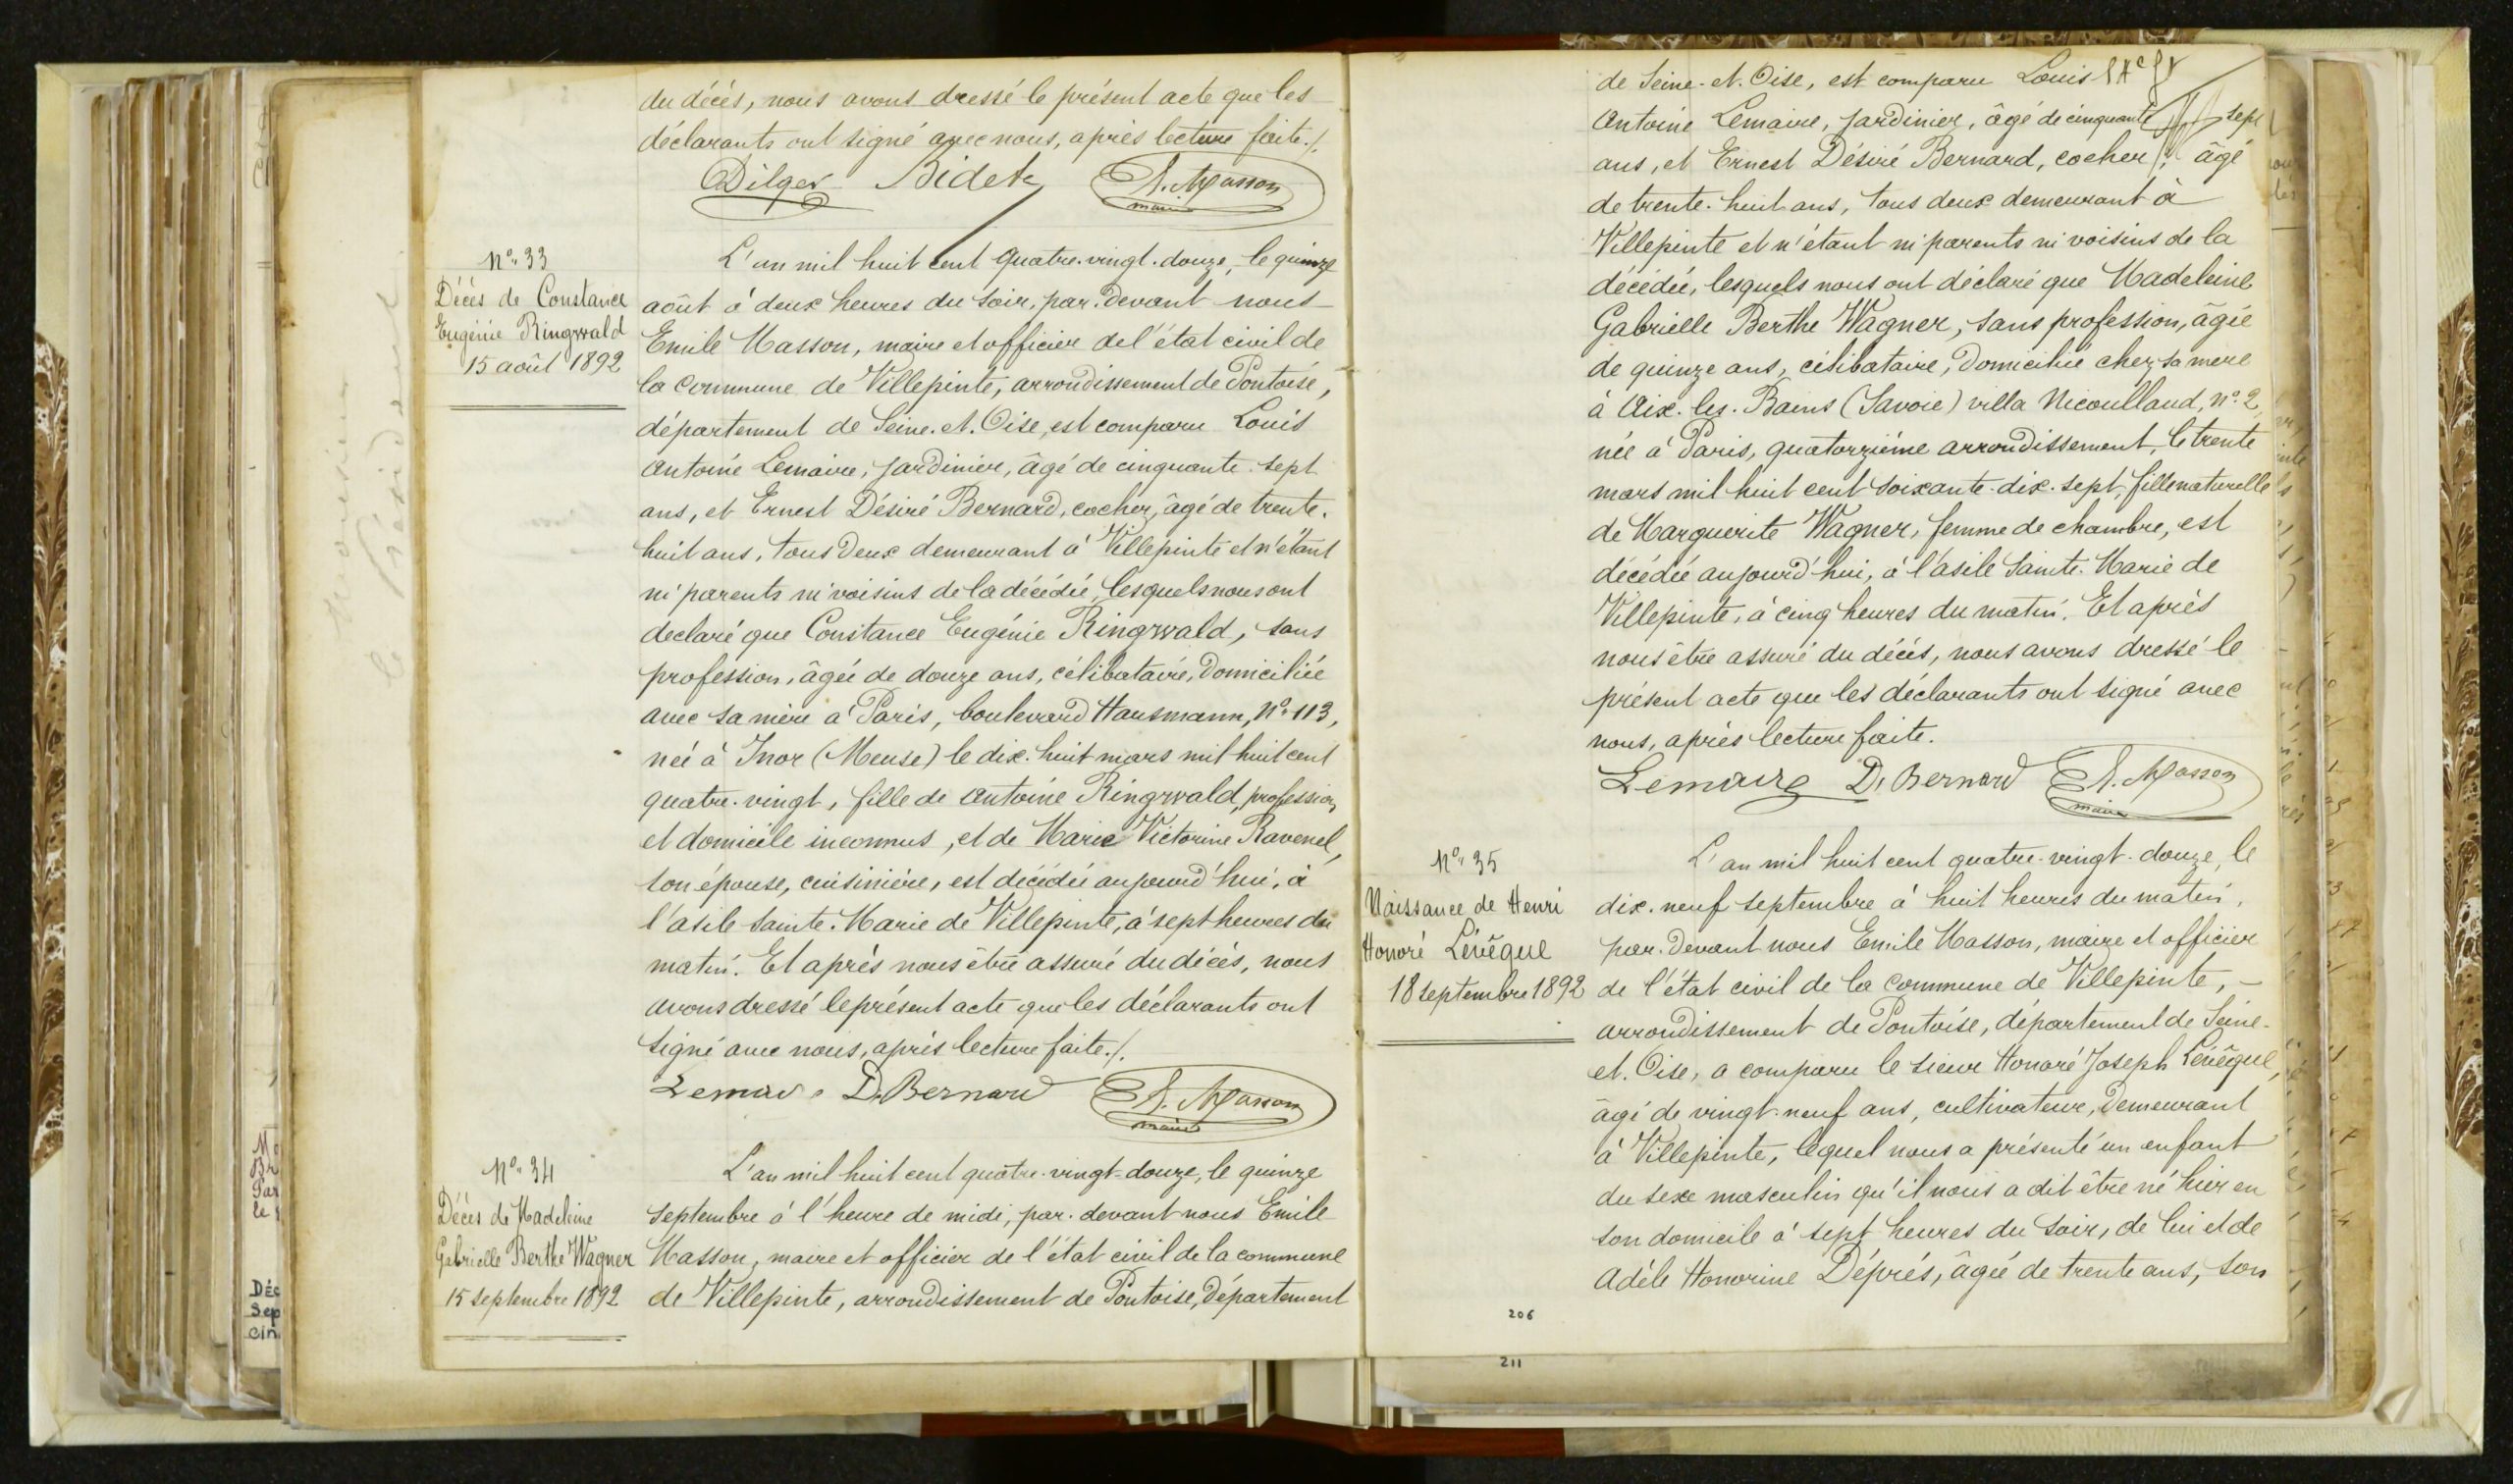 du décès, nous avons dressé le présent acte que les
déclarants ont signé avec nous, après lecture faite./.
Dilger Bidet E. Masson
maire
No. 33
Décès de Constance
Eugénie Ringwald
15 août 1892
L'an mil huit cent quatre-vingt-douze, le quinze
août à deux heures du soir, par-devant nous
Emile Masson, maire et officier de l'état civil de
la commune de Villepinte, arrondissement de Pontoise,
département de Seine-et-Oise, est comparu Louis
Antoine Lemaire, jardinier, âgé de cinquante-sept
ans, et Ernest Désiré Bernard, cocher, âgé de trente-
huit ans, tous deux demeurant à Villepinte et n'étant
ni parents ni voisins de la décédée, lesquels nous ont
declaré que Constance Eugénie Ringwald, sans
profession, âgée de douze ans, célibataire, domiciliée
avec sa mère à Paris, boulevard Hausmann, No. 113,
née à Inor (Meuse) le dix-huit mars mil huit cent
quatre-vingt, fille de Antoine Ringwald, profession
et domicile inconnus, et de Marie Victorine Ravenel,
son épouse, cuisinière, est décédée aujourd'hui, à
l'asile Sainte-Marie de Villepinte, à sept heures du
matin. Et après nous être assuré du décès, nous
avons dressé le présent acte que les déclarants ont
signé avec nous, après lecture faite./.
Lemaire D. Bernard E. Masson
maire
No. 34
Décès de Madeleine
Gabrielle Berthe Wagner
15 septembre 1892
L'an mil huit cent quatre-vingt-douze, le quinze
septembre à l'heure de midi, par-devant nous Emile
Masson, maire et officier de l'état civil de la commune
de Villepinte, arrondissement de Pontoise, département
de Seine-et-Oise, est comparu Louis
Antoine Lemaire, jardinier, âgé de cinquante sept
ans, et Ernest Désiré Bernard, cocher, âgé
de trente-huit ans, tous deux demeurant à
Villepinte et n'étant ni parents ni voisins de la
décédée, lesquels nous ont déclaré que Madeleine
Gabrielle Berthe Wagner, sans profession, âgée
de quinze ans, célibataire, domiciliée chez sa mère
à Aix-les-Bains (Savoie) villa Nicoulland, No. 2,
née à Paris, quatorzième arrondissement, le trente
mars mil huit cent soixante-dix-sept, fille naturelle
de Marguerite Wagner, femme de chambre, est
décédée aujourd'hui, à l'asile Sainte-Marie de
Villepinte, à cinq heures du matin. Et après
nous être assuré du décès, nous avons dressé le
présent acte que les déclarants ont signé avec
nous, après lecture faite.
Lemaire D. Bernard E. Masson
maire
No. 35
Naissance de Henri
Honoré Lévêque
18 septembre 1892
L'an mil huit cent quatre-vingt-douze, le
dix-neuf septembre à huit heures du matin,
par-devant nous Emile Masson, maire et officier
de l'état civil de la commune de Villepinte, -
arrondissement de Pontoise, département de Seine-
et-Oise, a comparu le sieur Honoré Joseph Lévêque,
âgé de vingt-neuf ans, cultivateur, demeurant
à Villepinte, lequel nous a présenté un enfant
du sexe masculin qu'il nous a dit être né hier en
son domicile à sept heures du soir, de lui et de
Adèle Honorine Déprés, âgée de trente ans, son
206
211